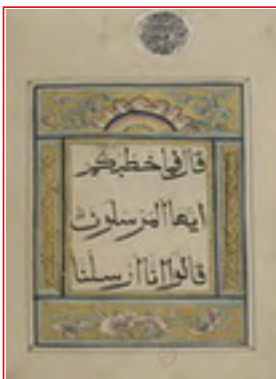 قال فما خطبكم
ايها المرسلون
قالوا انا ارسلنا